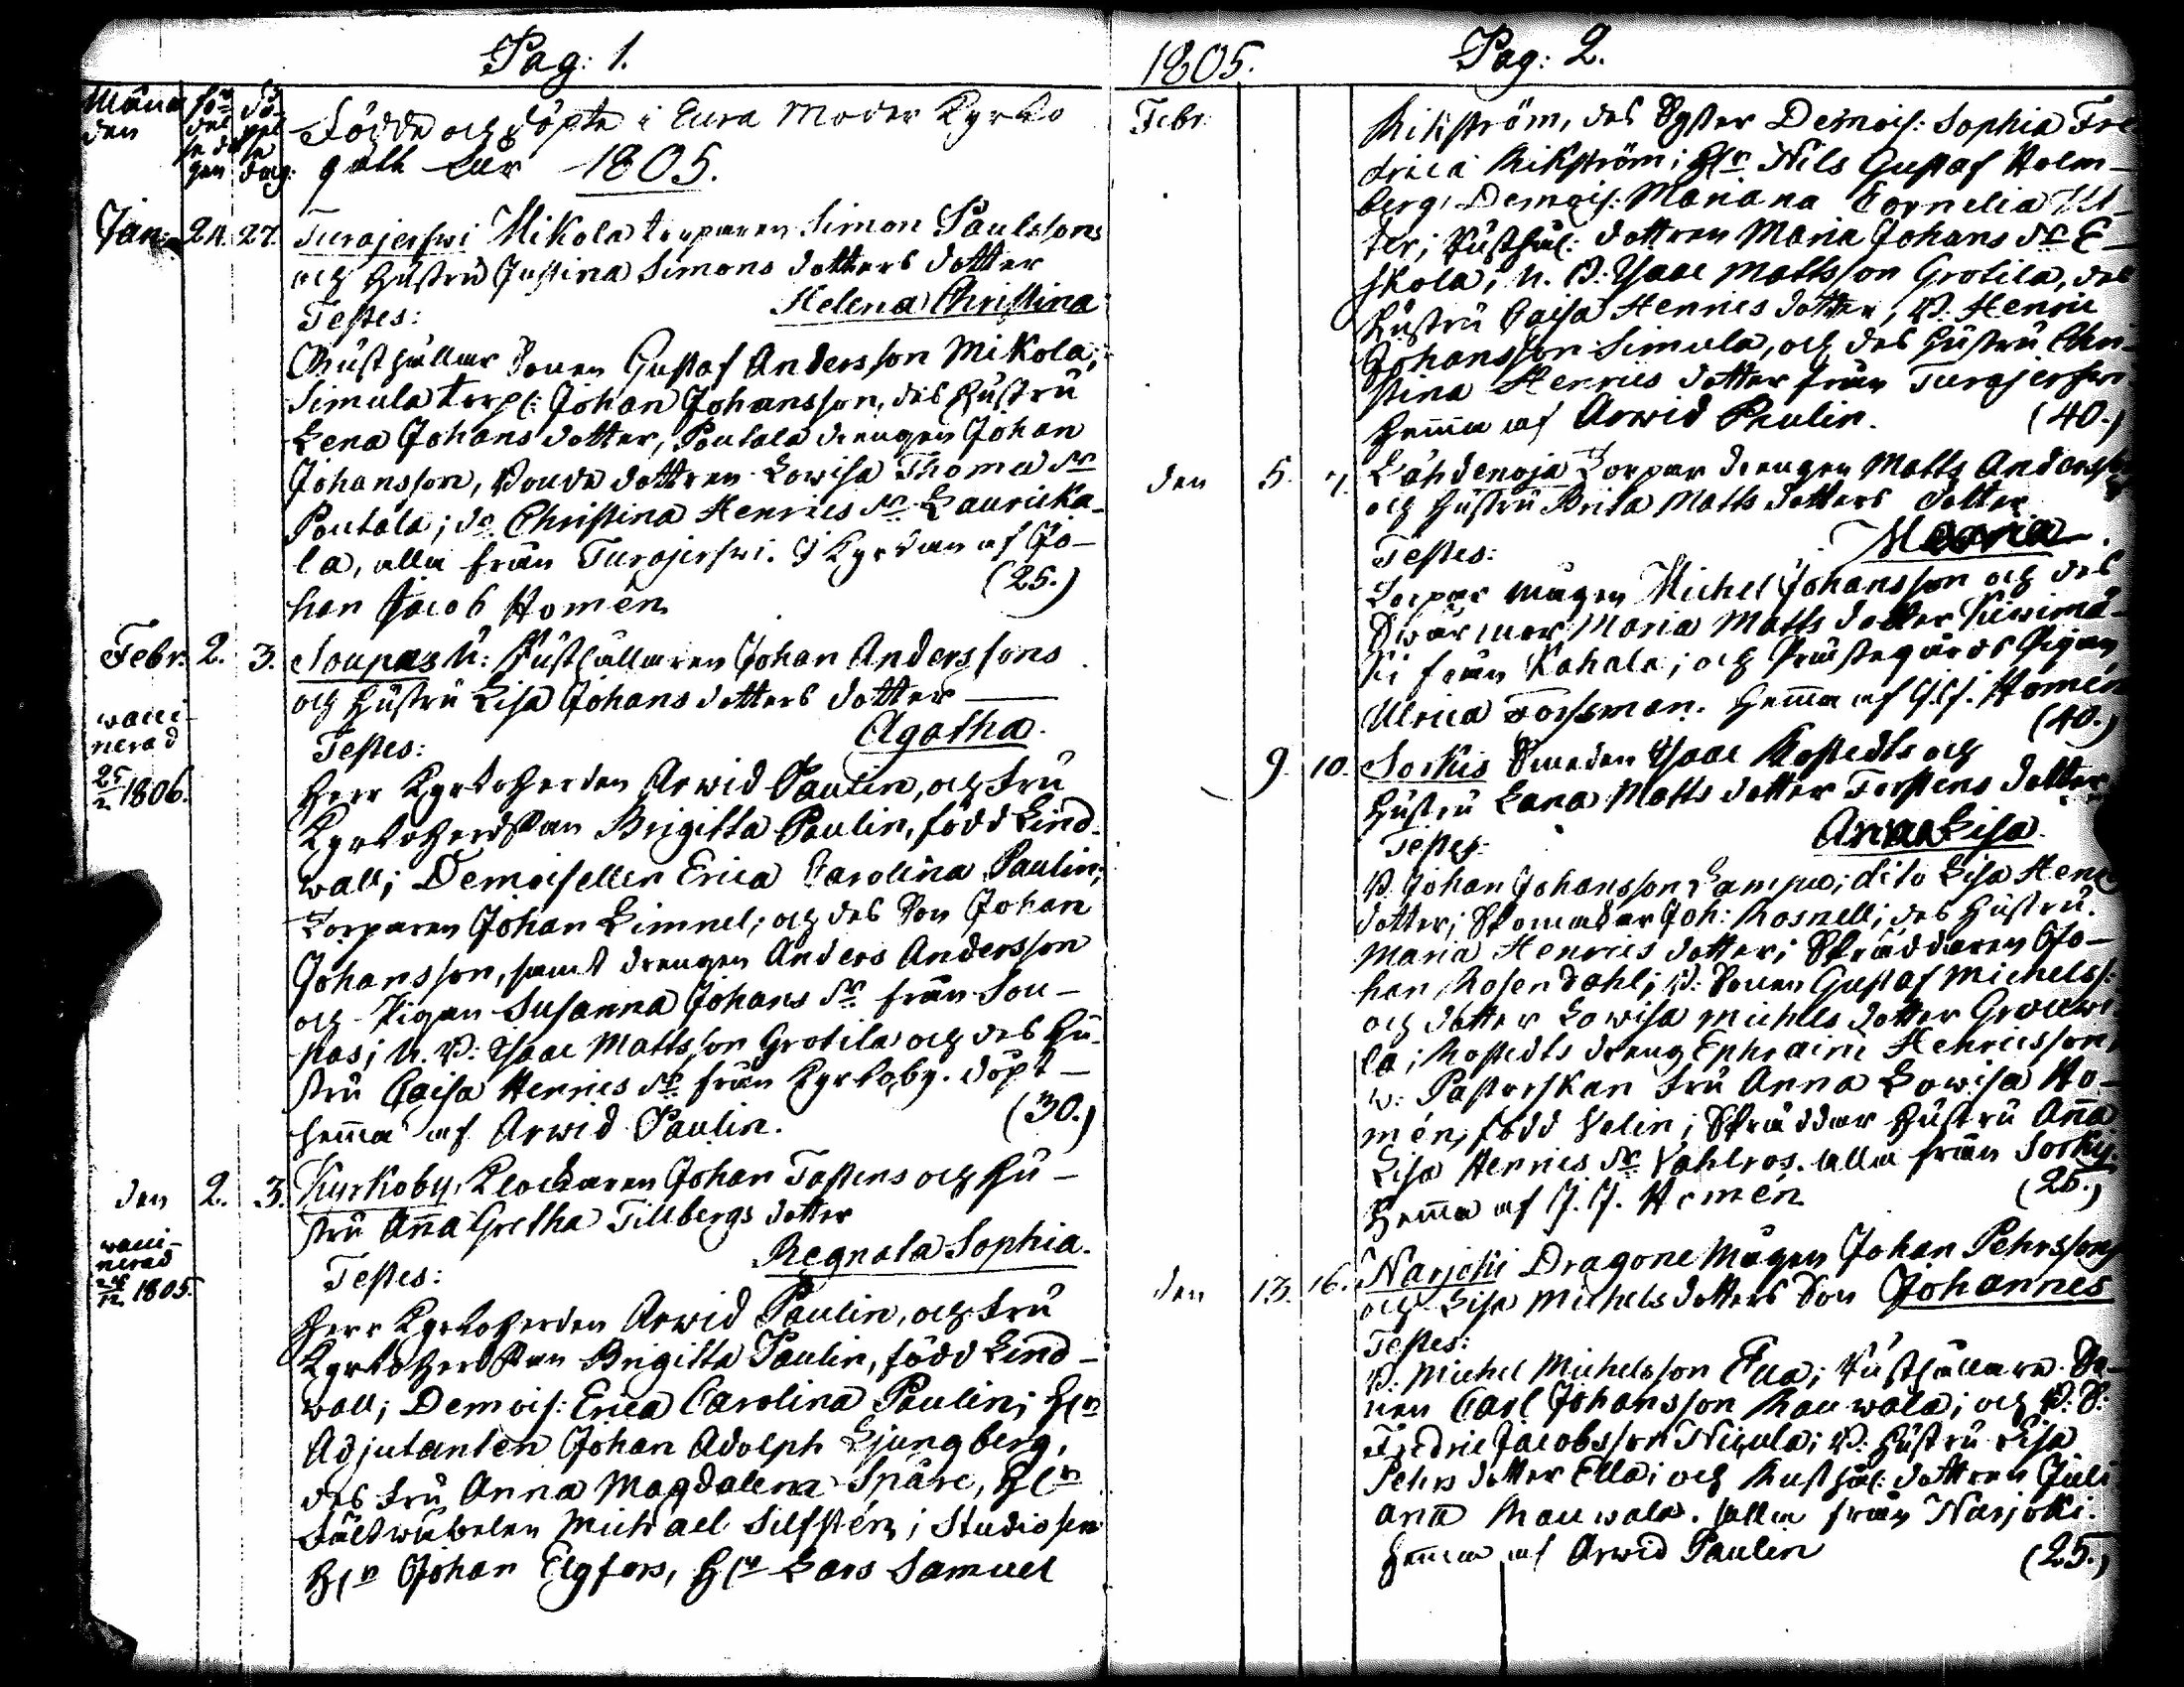 Pag: 1.
Månaden
födelsedagen
döpelsedag:
Födde och döpte i Eura Moder Kyrko
gäll åhr 1805.
Jan: 24. 27. Turajerfwi Mikola torparen Simon Paulssons
och hustru Justina Simons dotters dotter
Helena Christina
Testes:
Rusthållare Sonen Gustaf Andersson Mikola;
Simula torp: Johan Johansson, des hustru
Lena Johans dotter, Poutala drengen Johan
Johansson, Bonde dottren Lowisa Thomæ dr
Poutala; do Christina Henrics dr Lauricka-
la, alla från Turajerfwi. I Kyrckan af Jo-
han Jacob Homén
(25.)
Febr: 2. 3. Soupas N: Rusthållaren Johan Anderssons
och hustru Lisa Johans dotters dotter
Agatha.
waccinerad
25/2 1806.
Testes:
Herr Kyrkoherden Arwid Paulin, och Fru
Kyrkoherdskan Brigitta Paulin, född Lind-
wall; Demoisellen Erica Carolina Paulin;
Torparen Johan Limnel; och des Son Johan
Johansson, samt drengen Anders Andersson
och Pigan Susanna Johans dr från Sou-
pas; N. B: Isaac Mattsson Grotila och des hu-
stru Caisa Henrics dr från Kyrkoby. döpt
hemma af Arwid Paulin.
(30.)
den 2. 3. Kyrkoby, Klockaren Johan Fastens och hu-
stru Anna Gretha Tillbergs dotter
Regnala Sophia.
waccinerad
1805.
Testes:
Herr Kyrkoherden Arwid Paulin, och Fru
Kyrkoherdskan Brigitta Paulin, född Lind-
wall; Demois: Erica Carolina Paulin; Hrn
Adjutanten Johan Adolph Ljungberg,
des Fru Anna Magdalena Spåre, Hrn
Fältwäbelen Michael Silfstén; Studiosen
Hrn Johan Elgfors, Hrn Lars Samuel
1805.
Pag: 2.
Febr:
Rikström, des Syster Demois: Sophia Fre
drica Rikström; Hrn Nils Gustaf Holm-
berg; Demois: Mariana Cornelia Ut-
ter; Rusthål: dottren Maria Johans dr E-
skola; N. B: Isaac Mattsson Grotila, des
hustru Caisa Henrics dotter, B. Henric
Johansson Simula, och des hustru Chri-
stina Henrics dotter från Turajerfwi
hemma af Arwid Paulin.
(40.)
den 5. 7. Lähdenoja Torpar drengen Matts Anderss
och hustru Brita Matts dotters dotter
Maria.
Testes:
Torpar mågen Michel Johansson och des
Swärmor Maria Matts dotter Kiwimä-
ki från Kahala; och Prästegårds Pigan
Ulrica Forssman. hemma af J. J. Homén
(40.)
9. 10. Sorkis Smeden Isaac Rostedts och
hustru Lena Matts dotter Forstens dotter
Anna Lisa.
Testes:
B. Johan Johansson Lampu; dito Lisa Henr
dotter; Skomakar Joh: Rosnell; des hustru
Maria Henrics dotter; Skräddaren Jo-
han Rosendahl; B: Sonen Gustaf Michelss:
och dotter Lowisa Michels dotter
la; Rostedts dreng Ephraim Henricsson,
w: Pastorskan Fru Anna Lowisa Ho-
mén, född Velin; Skräddar hustru Anna
Lisa Henrics dr Vahlros. alla från Sorkis.
hemma af J. J. Homén
(25.)
den 13. 16. Narjoki Dragone Mågen Johan Pehrssons
och Lisa Michels dotters Son Johannes
Testes:
B: Michel Michelsson Ella; Rusthållare So-
nen Carl Johansson Rauwala; och B: S:
Fredric Jacobsson Nigula; B: hustru Lisa
Pehrs dotter Ella; och Rusthål: dottren Juli
ana Rauwala. alla från Narjoki.
hemma af Arwid Paulin
(25.)